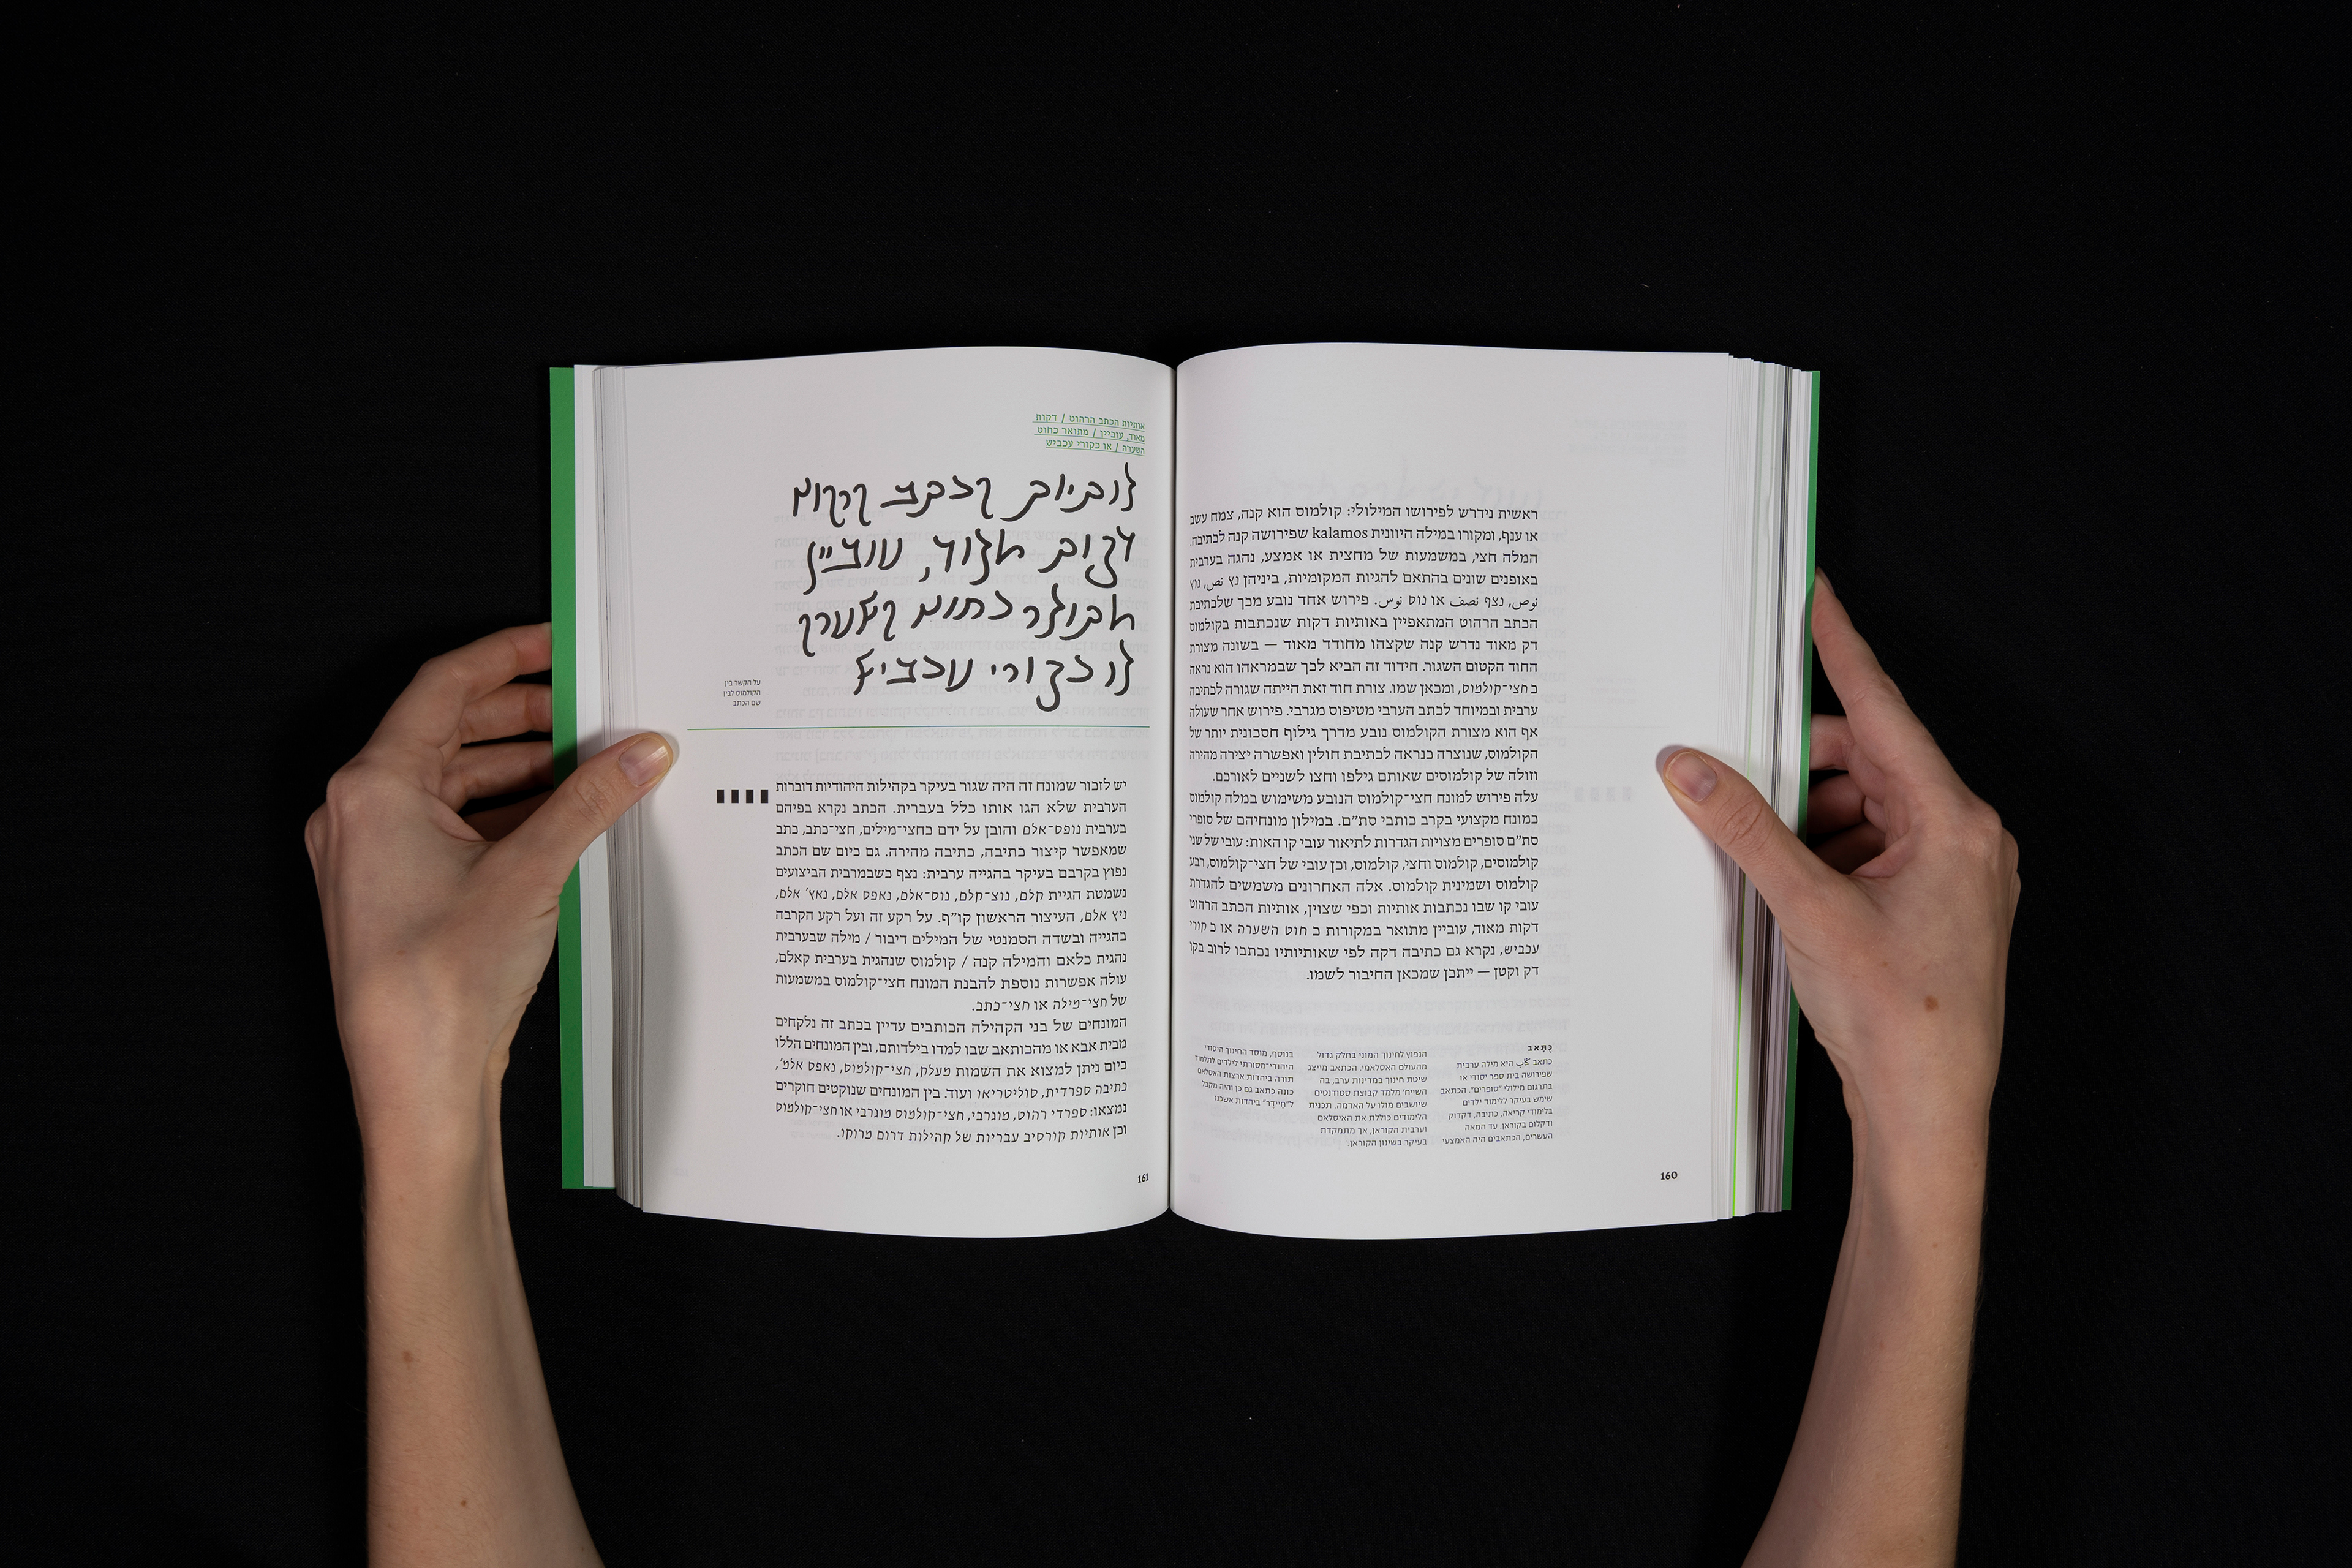 ראשית נידרש לפירושו המילולי: קולמוס הוא קנה, צמח עשב
או ענף, ומקורו במילה היוונית kalamos שפירושה קנה לכתיבה.
המלה חצי, במשמעות של מחצית או אמצע, נהגה בערבית
באופנים שונים בהתאם להגיות המקומיות, ביניהן נץ نص, נוץ
نوص, נצף نصف או נוס نوس. פירוש אחד נובע מכך שלכתיבת
הכתב הרהוט המתאפיין באותיות דקות שנכתבות בקולמוס
דק מאוד נדרש קנה שקצהו מחודד מאוד — בשונה מצורת
החוד הקטום השגור. חידוד זה הביא לכך שבמראהו הוא נראה
כ חצי־קולמוס, ומכאן שמו. צורת חוד זאת הייתה שגורה לכתיבה
ערבית ובמיוחד לכתב הערבי מטיפוס מגרבי. פירוש אחר שעולה
אף הוא מצורת הקולמוס נובע מדרך גילוף חסכונית יותר של
הקולמוס, שנוצרה כנראה לכתיבת חולין ואפשרה יצירה מהירה
וזולה של קולמוסים שאותם גילפו וחצו לשניים לאורכם.
עלה פירוש למונח חצי־קולמוס הנובע משימוש במלה קולמוס
כמונח מקצועי בקרב כותבי סת״ם. במילון מונחיהם של סופרי
סת״ם סופרים מצויות הגדרות לתיאור עובי קו האות: עובי של שני
קולמוסים, קולמוס וחצי, קולמוס, וכן עובי של חצי־קולמוס, רבע
קולמוס ושמינית קולמוס. אלה האחרונים משמשים להגדרת
עובי קו שבו נכתבות אותיות וכפי שצוין, אותיות הכתב הרהוט
דקות מאוד, עוביין מתואר במקורות כ חוט השערה או כ קורי
עכביש, נקרא גם כתיבה דקה לפי שאותיותיו נכתבו לרוב בקו
דק וקטן — ייתכן שמכאן החיבור לשמו.
כֻּתָּאב
כתאב كُتّاب היא מילה ערבית
שפירושה בית ספר יסודי או
בתרגום מילולי ״סופרים״. הכתאב
שימש בעיקר ללימוד ילדים
בלימודי קריאה, כתיבה, דקדוק
ודקלום בקוראן. עד המאה
העשרים, הכתאבים היה האמצעי
הנפוץ לחינוך המוני בחלק גדול
מהעולם האסלאמי. הכתאב מייצג
שיטת חינוך במדינות ערב, בה
השייח׳ מלמד קבוצת סטודנטים
שיושבים מולו על האדמה. תכנית
הלימודים כוללת את האיסלאם
וערבית הקוראן, אך מתמקדת
בעיקר בשינון הקוראן.
בנוסף, מוסד החינוך היסודי
היהודי־מסורתי לילדים לתלמוד
תורה ביהדות ארצות האסלאם
כונה כתאב גם כן והיה מקבל
ל״חֵיידֶר״ ביהדות אשכנז
160
אותיות הכתב הרהוט / דקות
מאוד, עוביין / מתואר כחוט
השערה / או כקורי עכביש
אותיות הכתב הרהוט
דקות מאוד, עוביין
מתואר כחוט השערה
או כקורי עכביש
על הקשר בין
הקולמוס לבין
שם הכתב
יש לזכור שמונח זה היה שגור בעיקר בקהילות היהודיות דוברות
הערבית שלא הגו אותו כלל בעברית. הכתב נקרא בפיהם
בערבית נופס־אלם והובן על ידם כחצי־מילים, חצי־כתב, כתב
שמאפשר קיצור כתיבה, כתיבה מהירה. גם כיום שם הכתב
נפוץ בקרבם בעיקר בהגייה ערבית: נצף כשבמרבית הביצועים
נשמטת הגיית קלם, נוצ־קלם, נוס־אלם, נאפס אלם, נאץ׳ אלם,
ניץ אלם, העיצור הראשון קו״ף. על רקע זה ועל רקע הקרבה
בהגייה ובשדה הסמנטי של המילים דיבור / מילה שבערבית
נהגית כלאם והמילה קנה / קולמוס שנהגית בערבית קאלם,
עולה אפשרות נוספת להבנת המונח חצי־קולמוס במשמעות
של חצי־מילה או חצי־כתב.
המונחים של בני הקהילה הכותבים עדיין בכתב זה נלקחים
מבית אבא או מהכותאב שבו למדו בילדותם, ובין המונחים הללו
כיום ניתן למצוא את השמות מעלק, חצי־קולמוס, נאפס אלמ׳,
כתיבה ספרדית, סוליטריאו ועוד. בין המונחים שנוקטים חוקרים
נמצאו: ספרדי רהוט, מוגרבי, חצי־קולמוס מוגרבי או חצי־קולמוס
וכן אותיות קורסיב עבריות של קהילות דרום מרוקו.
161